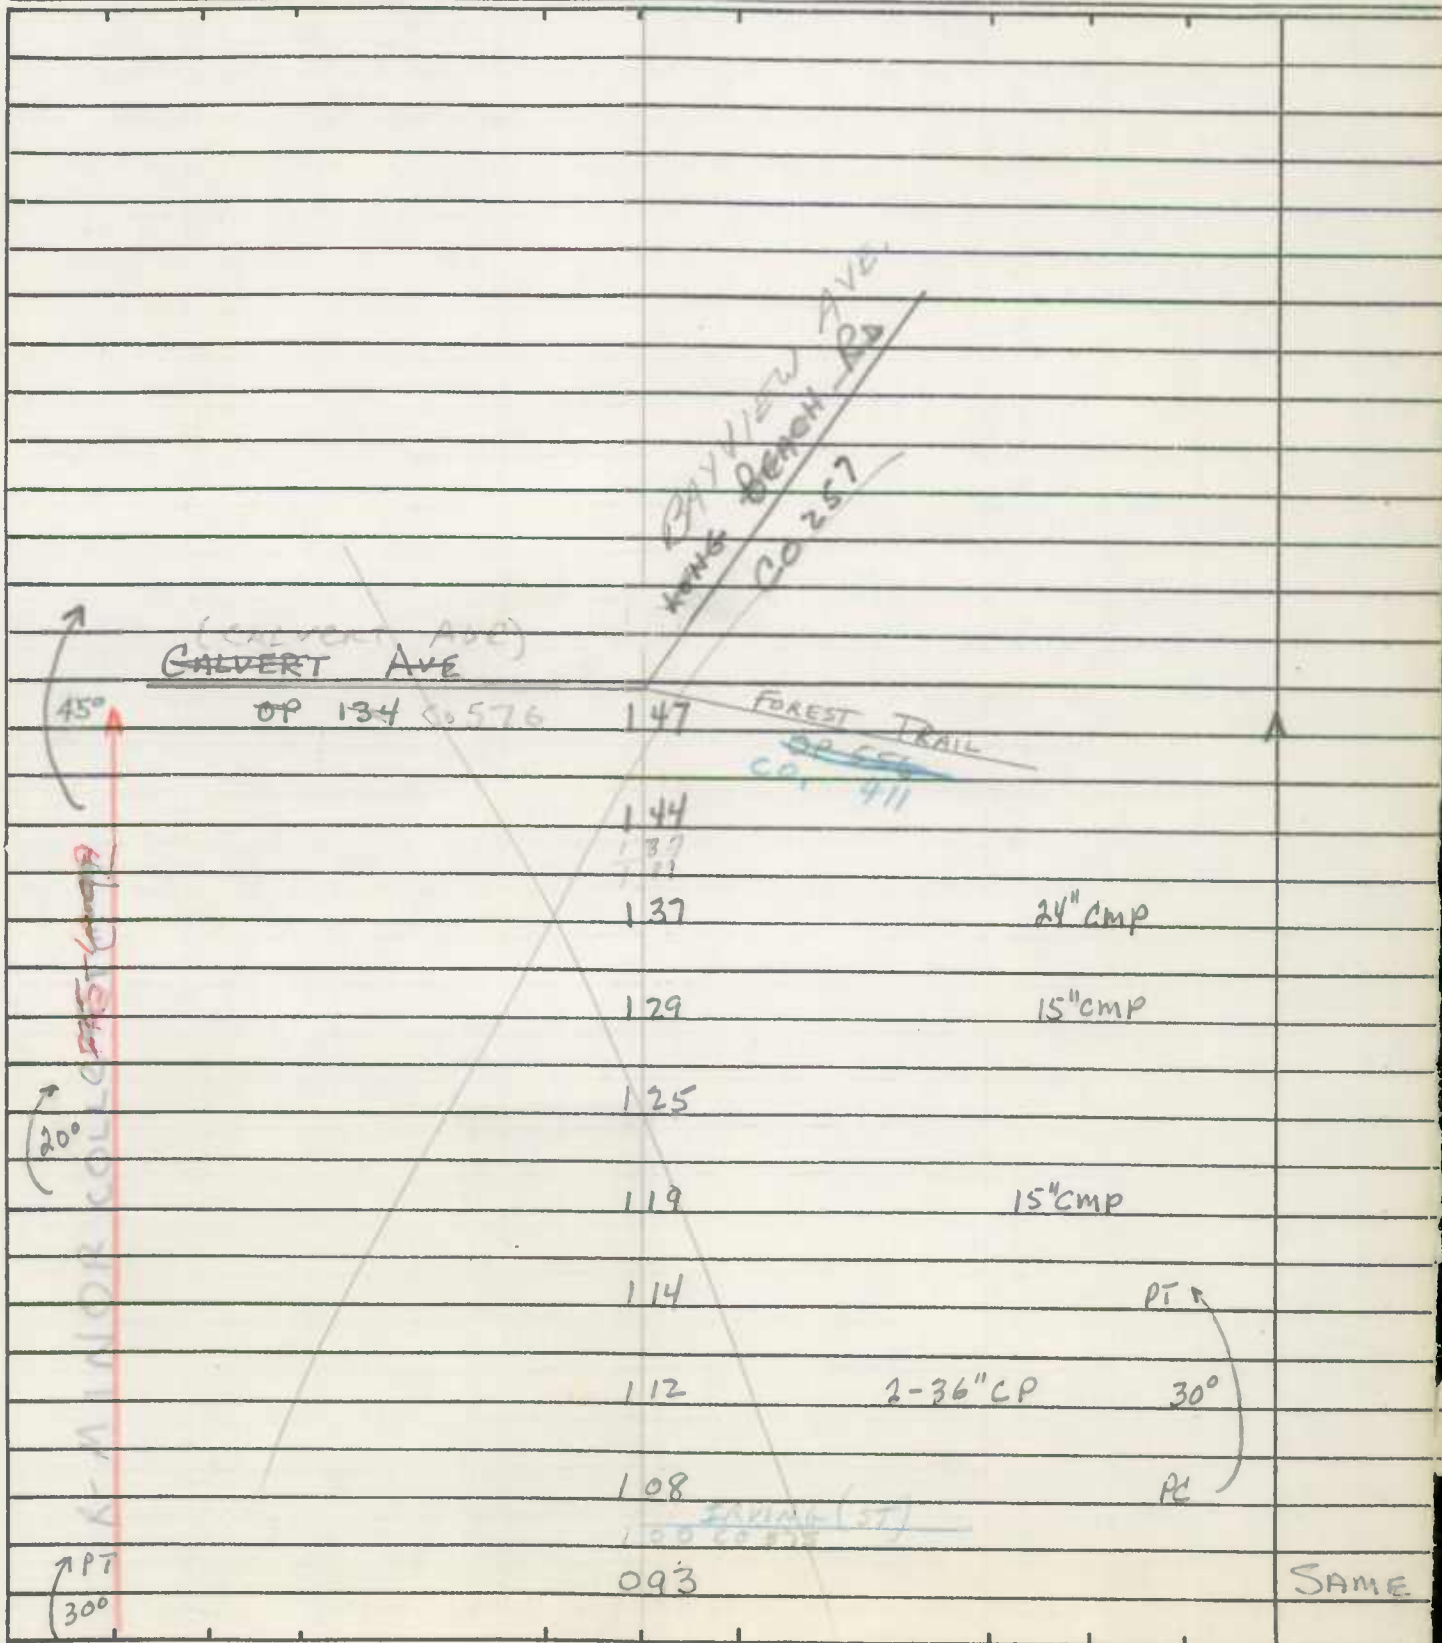 BAYVIEW AVE.
LONG BEACH RD
CO 257
(CALVERT AVE)
CALVERT AVE
45°
OP 134 CO 576
1 47
FOREST TRAIL
CO. 411
1 44
1 37
1 37
24" CMP
1 29
15" CMP
1 25
20°
1 19
15" CMP
1 14
PT
1 12
2-36" CP
30°
1 08
PC
IRVING (ST)
1 00 CO
PT
093
SAME
30°
R-MINOR COLLECTOR